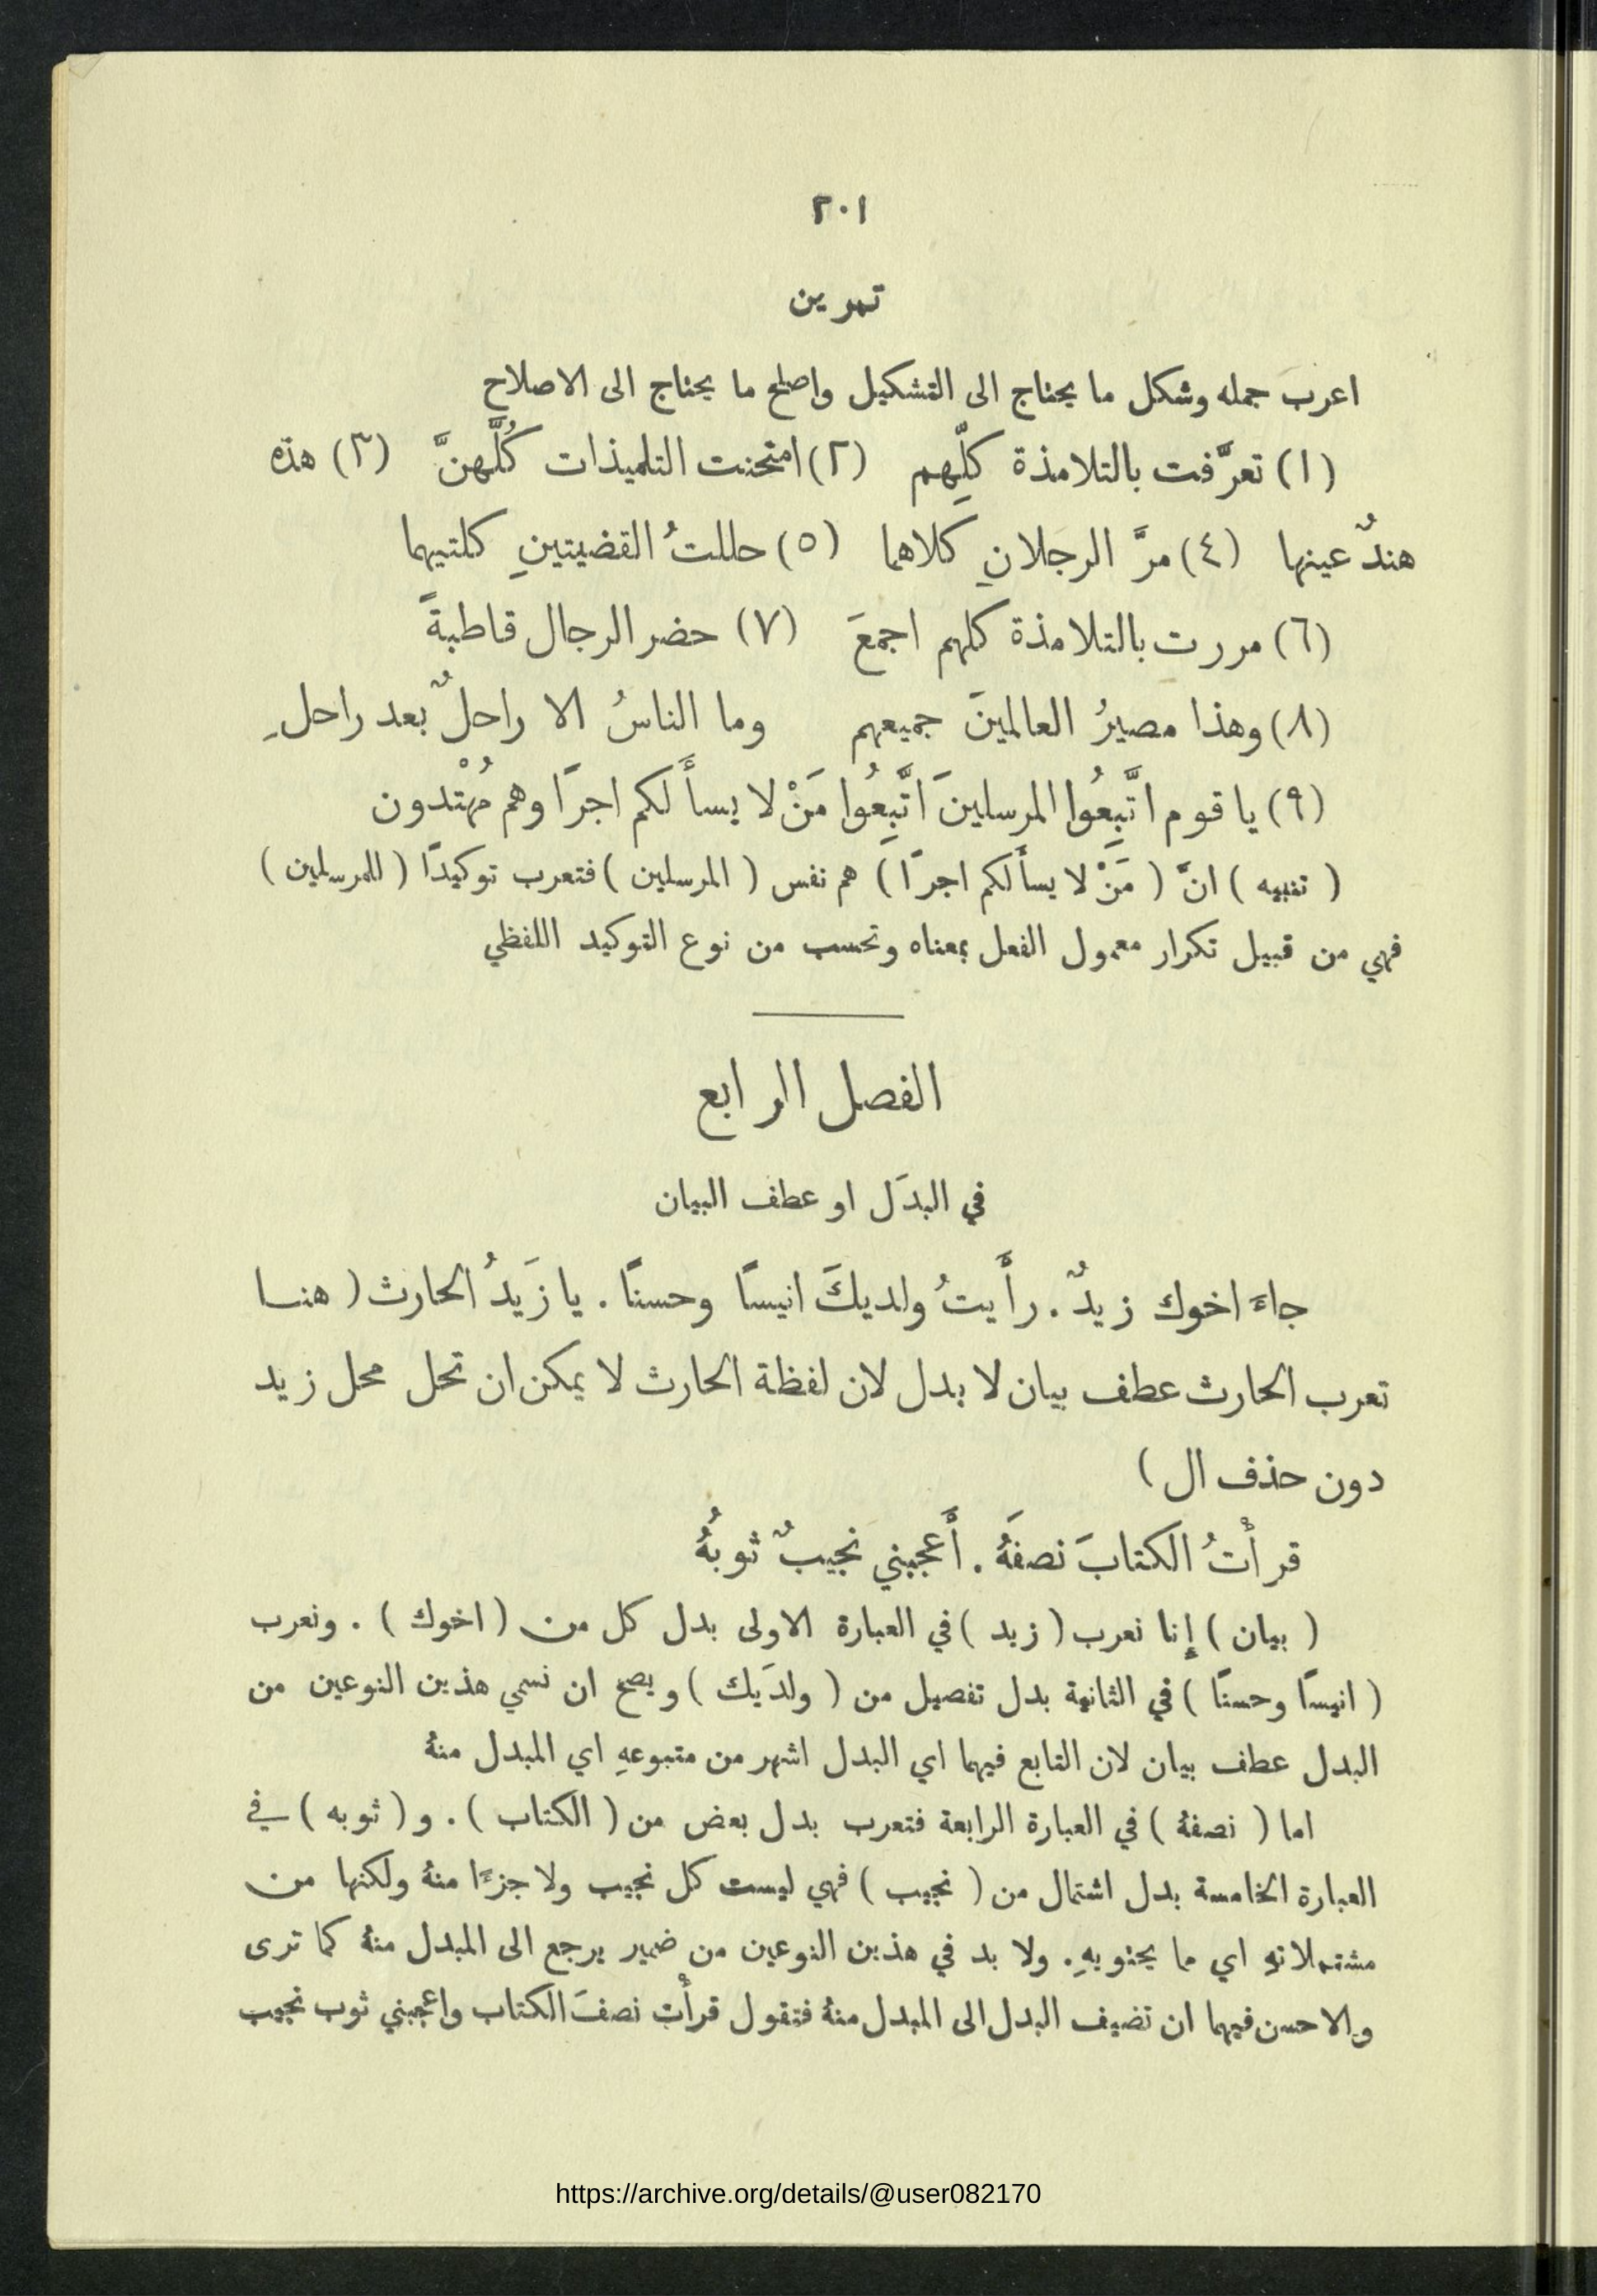 ٢٠١
تمرين
اعرب جمله وشكل ما يحتاج الى التشكيل واصلح ما يحتاج الى الاصلاح
(١) تعرَّفت بالتلامذة كلِّهم (٢) امتحنت التلميذات كُلَّهنَّ (٣) هذه
هندٌ عينها (٤) مرَّ الرجلانِ كلاهما (٥) حللتُ القضيتينِ كلتيهما
(٦) مررت بالتلامذة كلهم اجمعَ (٧) حضر الرجال قاطبةً
(٨) وهذا مصيرُ العالمينَ جميعهم وما الناسُ الا راحلٌ بعد راحلِ
(٩) يا قوم اتَّبِعُوا المرسلينَ اتَّبِعُوا مَنْ لا يسأَلكم اجرًا وهم مُهْتدون
( تنبيه ) انَّ ( مَنْ لا يسأَلكم اجرًا ) هم نفس ( المرسلين ) فتعرب توكيدًا ( للمرسلين )
فهي من قبيل تكرار معمول الفعل بمعناه وتحسب من نوع التوكيد اللفظي
الفصل الرابع
في البدَل او عطف البيان
جاءَ اخوك زيدٌ . رأَيتُ ولديكَ انيسًا وحسنًا . يا زَيدُ الحارث ( هنا
تعرب الحارث عطف بيان لا بدل لان لفظة الحارث لا يمكن ان تحل محل زيد
دون حذف ال )
قرأْتُ الكتابَ نصفَهُ . أَعجبني نجيبٌ ثوبُهُ
( بيان ) إنا نعرب ( زيد ) في العبارة الاولى بدل كل من ( اخوك ) . ونعرب
( انيسًا وحسنًا ) في الثانية بدل تفصيل من ( ولدَيك ) ويصح ان نسمي هذين النوعين من
البدل عطف بيان لان التابع فيهما اي البدل اشهر من متبوعهِ اي المبدل منهُ
اما ( نصفهُ ) في العبارة الرابعة فتعرب بدل بعض من ( الكتاب ) . و ( ثوبه ) في
العبارة الخامسة بدل اشتمال من ( نجيب ) فهي ليست كل نجيب ولا جزءًا منهُ ولكنها من
مشتملاتهِ اي ما يحتويهِ. ولا بد في هذين النوعين من ضمير يرجع الى المبدل منهُ كما ترى
والاحسن فيهما ان تضيف البدل الى المبدل منهُ فتقول قرأْت نصفَ الكتاب واعجبني ثوب نجيب
https://archive.org/details/@user082170